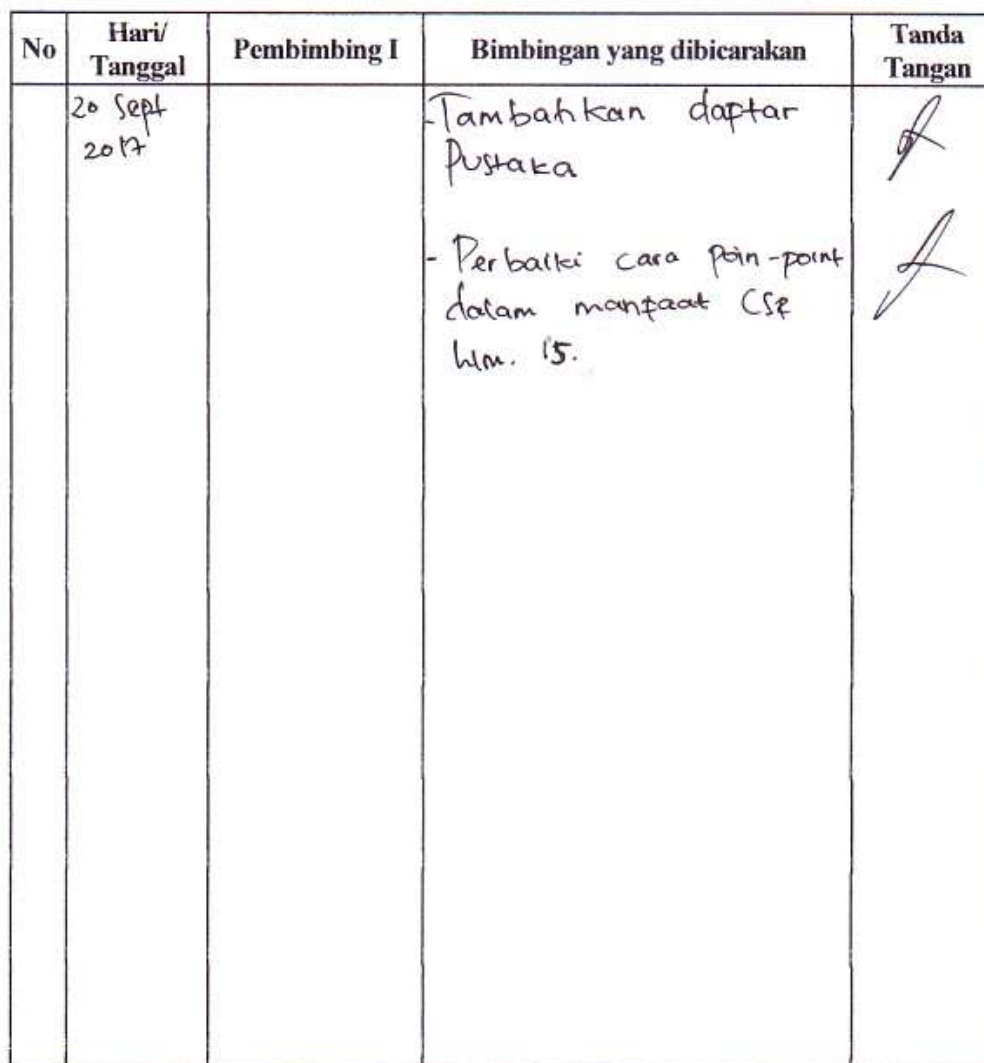 No
Hari/
Tanggal
Pembimbing I
Bimbingan yang dibicarakan
Tanda
Tangan
20 Sept
2017
-Tambahkan daptar
Pustaka
- Perbaiki cara poin-point
dalam manfaat CSR
hlm. 15.